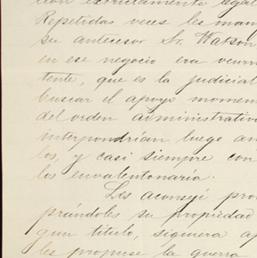 ción estrictamente legal
Repetidas veces les man
su antecesor Sr. Watson
en ese negocio era ocurr
tente, que es la judicial
buscar el apoyo momen
del orden administrativo
interpondrían luego an
los, y casi siempre con
los envalentonaría.
Les aconsejé pro
prándoles su propiedad
gun título, siquiera ap
les propuse la guerra